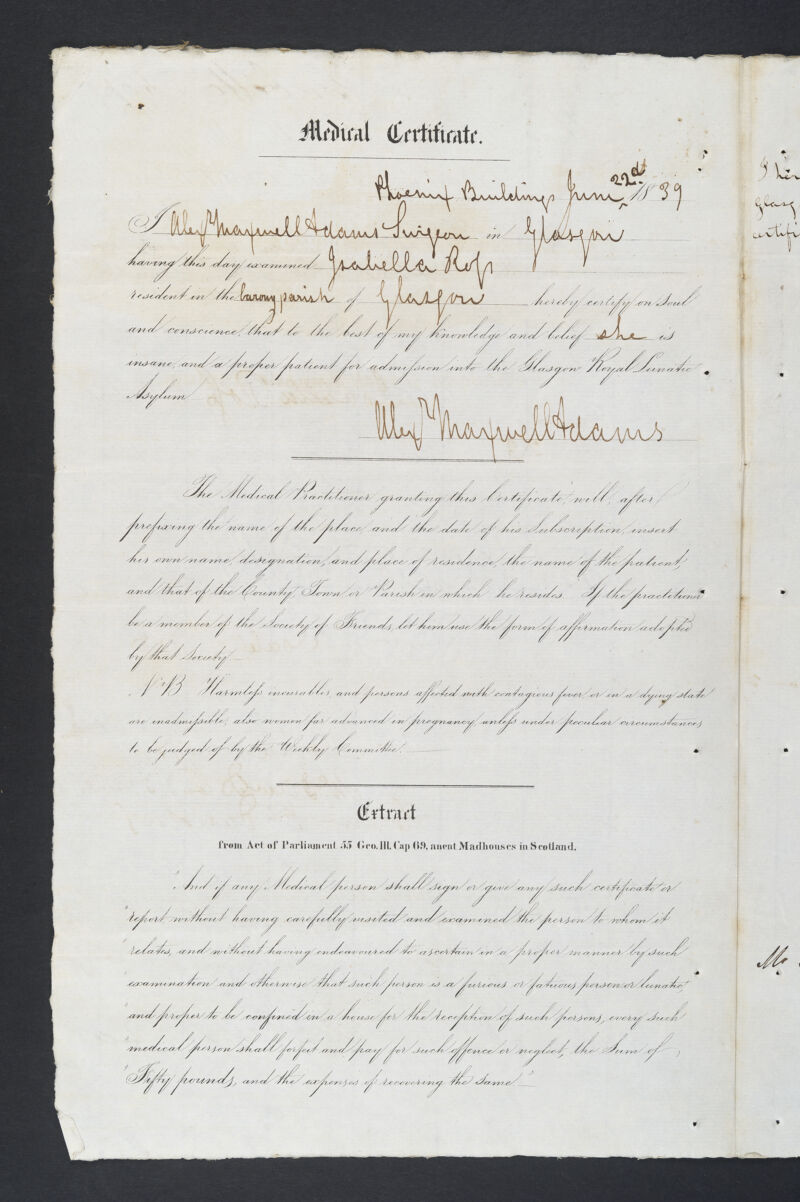 Medical Certificate.
Phoenix Buildings June 22d 1839
I Alexr Maxwell Adams Surgeon in Glasgow
having this day examined Isabella Ross
resident in the barony parish of Glasgow hereby certify on soul
and conscience, that to the best of my knowledge and belief she is
insane, and a proper patient for admission into the Glasgow Royal Lunatic
Asylum
Alexr Maxwell Adams
The Medical Practitioner granting this Certificate, will, after
prefixing the name of the place, and the date of his Subscription, insert
his own name, designation, and place of residence, the name of the patient,
and that of the County, Town or Parish in which he resides. If the practitioner
be a member of the Society of Friends, let him use the form of affirmation adopted
by that Society.
N.B. Harmless incurables, and persons affected with contagious fever, or in a dying state
are inadmissible, also women far advanced in pregnancy, unless under peculiar circumstances,
to be judged of by the Weekly Committee.
Extract
from Act of Parliament 55 Geo. III. Cap 69, anent Madhouses in Scotland.
"And if any Medical person shall sign or give any such certificate or
"report without having carefully visited and examined the person to whom it
"relates, and without having endeavoured to ascertain in a proper manner by such
"examination and otherwise that such person is a furious or fatuous person or lunatic,
"and proper to be confined in a house for the reception of such persons, every such
"medical person shall forfeit and pay for such offence or neglect, the Sum of
"Fifty pounds, and the expenses of recovering the same."
I her
Glasg
certifi